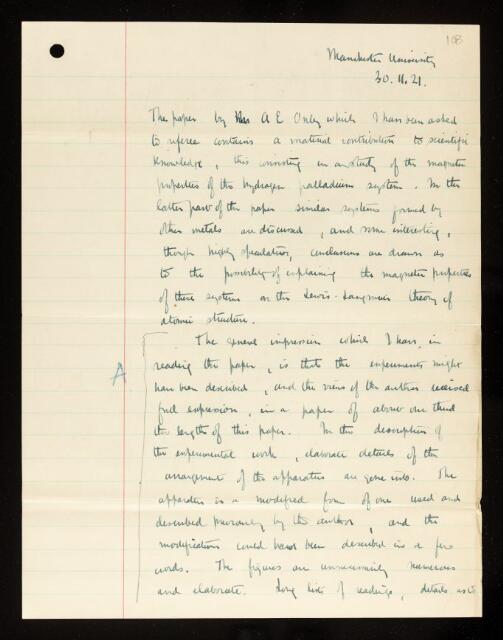 108
Manchester University
30.11.21.
The paper by Mr A E Oxley which I have been asked
to referee contains a material contribution to scientific
knowledge, this consisting in a study of the magnetic
properties of the hydrogen palladium system. In the
latter part of the paper similar systems formed by
other metals are discussed, and some interesting,
though highly speculative, conclusions are drawn as
to the possibility of explaining the magnetic properties
of these systems on the Lewis-Langmuir theory of
atomic structure.
The general impression which I have, in
A
reading the paper, is that the experiments might
have been described, and the views of the author received
full expression, in a paper of about one third
the length of this paper. In the description of
the experimental work, elaborate details of the
arrangement of the apparatus are gone into. The
apparatus is a modified form of one used and
described previously by the author, and the
modifications could have been described in a few
words. The figures are unnecessarily numerous
and elaborate. Long lists of readings, details as to